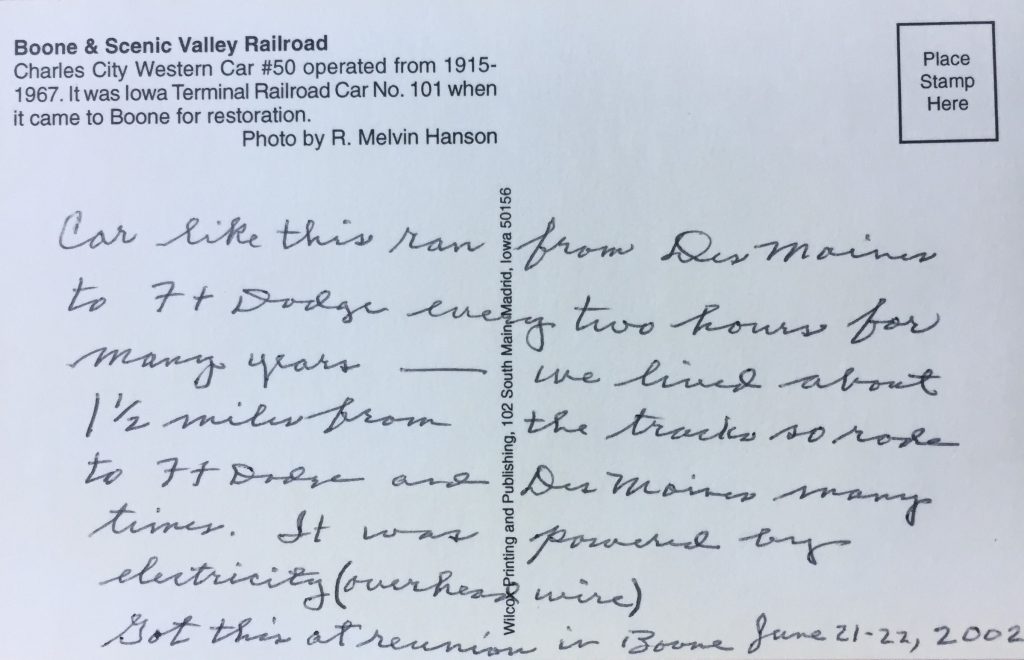 Boone & Scenic Valley Railroad
Charles City Western Car #50 operated from 1915-
1967. It was Iowa Terminal Railroad Car No. 101 when
it came to Boone for restoration.
Photo by R. Melvin Hanson
Place
Stamp
Here
Wilcox Printing and Publishing, 102 South Main, Madrid, Iowa 50156
Car like this ran from Des Moines
to Ft Dodge every two hours for
many years — we lived about
1 1/2 miles from the tracks so rode
to Ft Dodge and Des Moines many
times. It was powered by
electricity (overhead wire)
Got this at reunion in Boone June 21-22, 2002